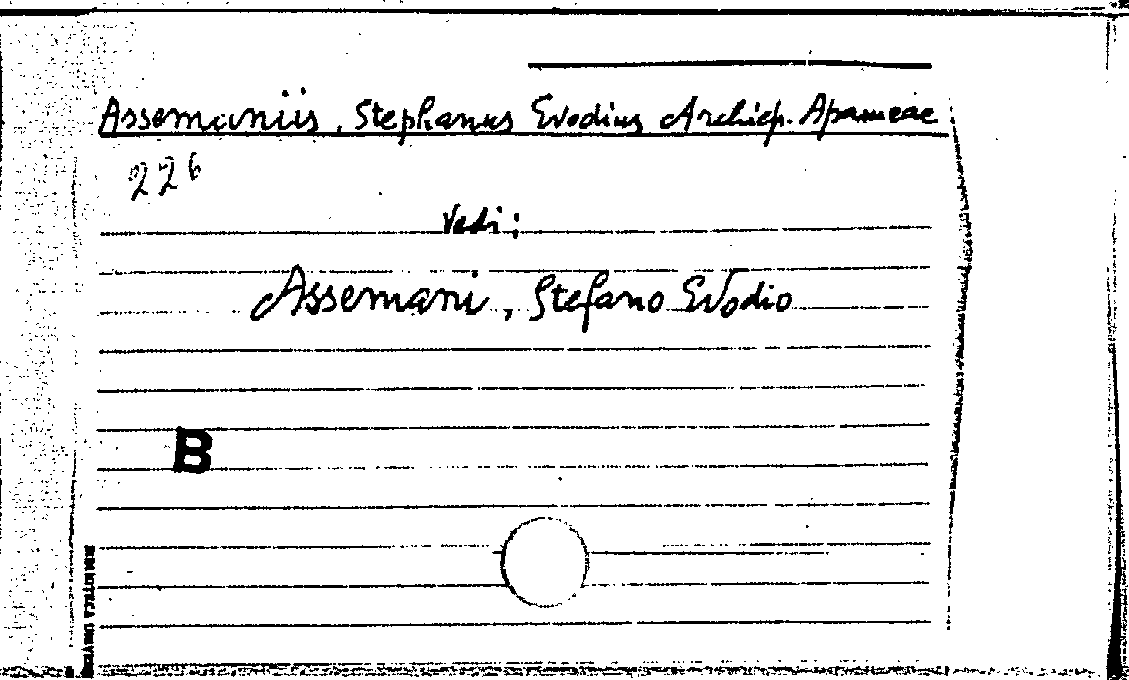 Assemaniis, Stephanus Evodius Archiep. Apameae
226
Vedi:
Assemani, Stefano Evodio
B
BIBLIOTECA UNIVE